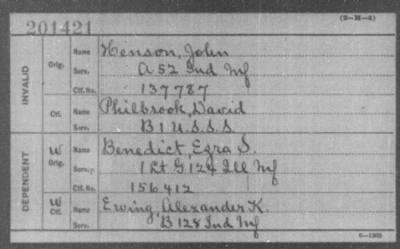 201421
INVALID
Orig.
Name Henson, John
Serv. A 52 Ind Inf
Ctf. No. 137787
Ctf.
Name Philbrook, David
Serv. B 1 U.S.S.S.
DEPENDENT
W
Orig.
Name Benedict, Ezra S.
Serv. 1 Lt G 124 Ill Inf
Ctf. No. 156412
W
Ctf.
Name Ewing, Alexander K.
Serv. B 128 Ind Inf